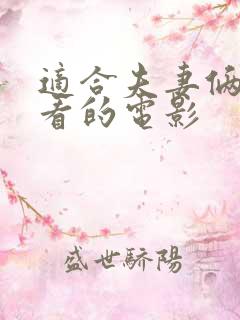 適合夫妻倆
看的電影
盛世驕陽